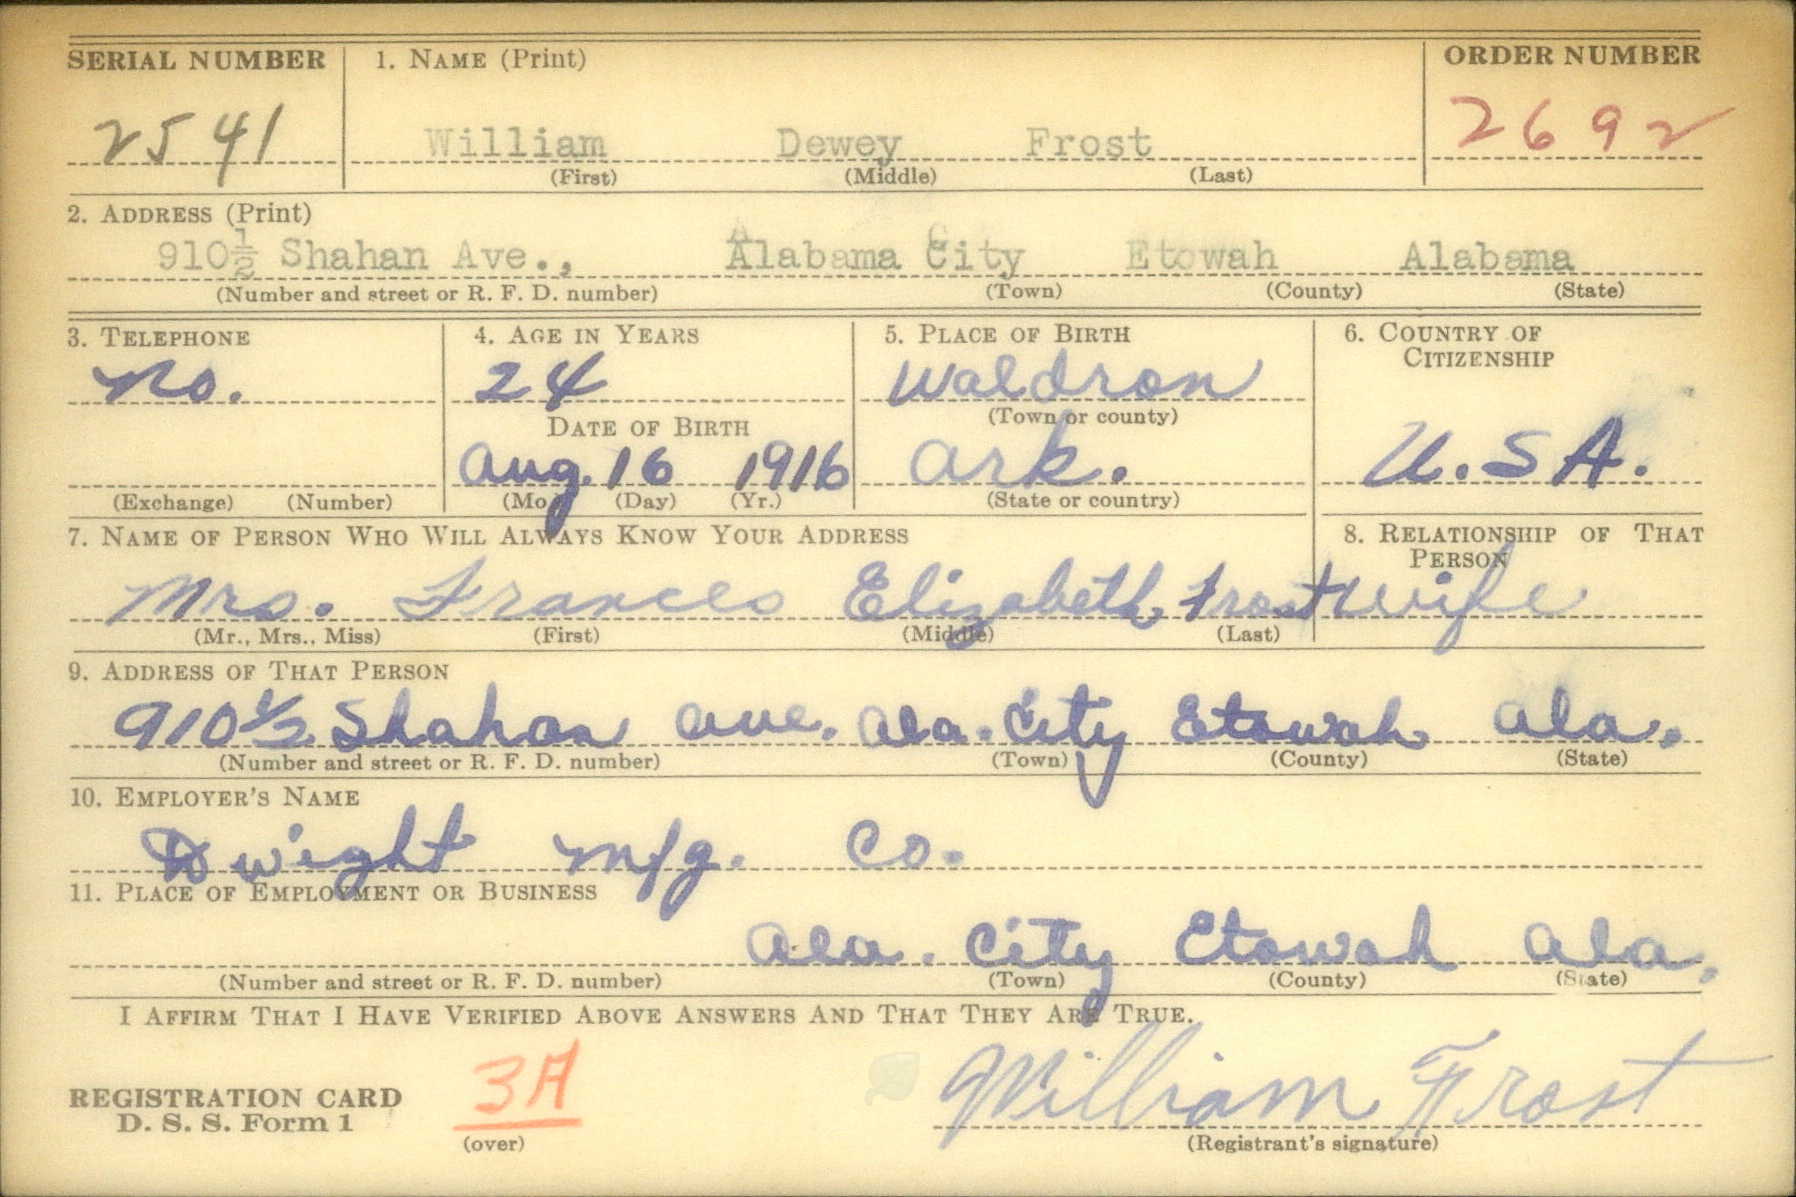 SERIAL NUMBER 1. NAME (Print) ORDER NUMBER
2541 William Dewey Frost 2692
(First) (Middle) (Last)
2. ADDRESS (Print)
910½ Shahan Ave., Alabama City Etowah Alabama
(Number and street or R. F. D. number) (Town) (County) (State)
3. TELEPHONE 4. AGE IN YEARS 5. PLACE OF BIRTH 6. COUNTRY OF
CITIZENSHIP
No. 24 Waldron
DATE OF BIRTH (Town or county)
Aug. 16 1916 Ark. U.S.A.
(Exchange) (Number) (Mo.) (Day) (Yr.) (State or country)
7. NAME OF PERSON WHO WILL ALWAYS KNOW YOUR ADDRESS 8. RELATIONSHIP OF THAT
PERSON
Mrs. Frances Elizabeth Frost wife
(Mr., Mrs., Miss) (First) (Middle) (Last)
9. ADDRESS OF THAT PERSON
910½ Shahan Ave. Ala. City Etowah Ala.
(Number and street or R. F. D. number) (Town) (County) (State)
10. EMPLOYER'S NAME
Dwight Mfg. Co.
11. PLACE OF EMPLOYMENT OR BUSINESS
Ala. City Etowah Ala.
(Number and street or R. F. D. number) (Town) (County) (State)
I AFFIRM THAT I HAVE VERIFIED ABOVE ANSWERS AND THAT THEY ARE TRUE.
REGISTRATION CARD 3A William Frost
D. S. S. Form 1
(over) (Registrant's signature)